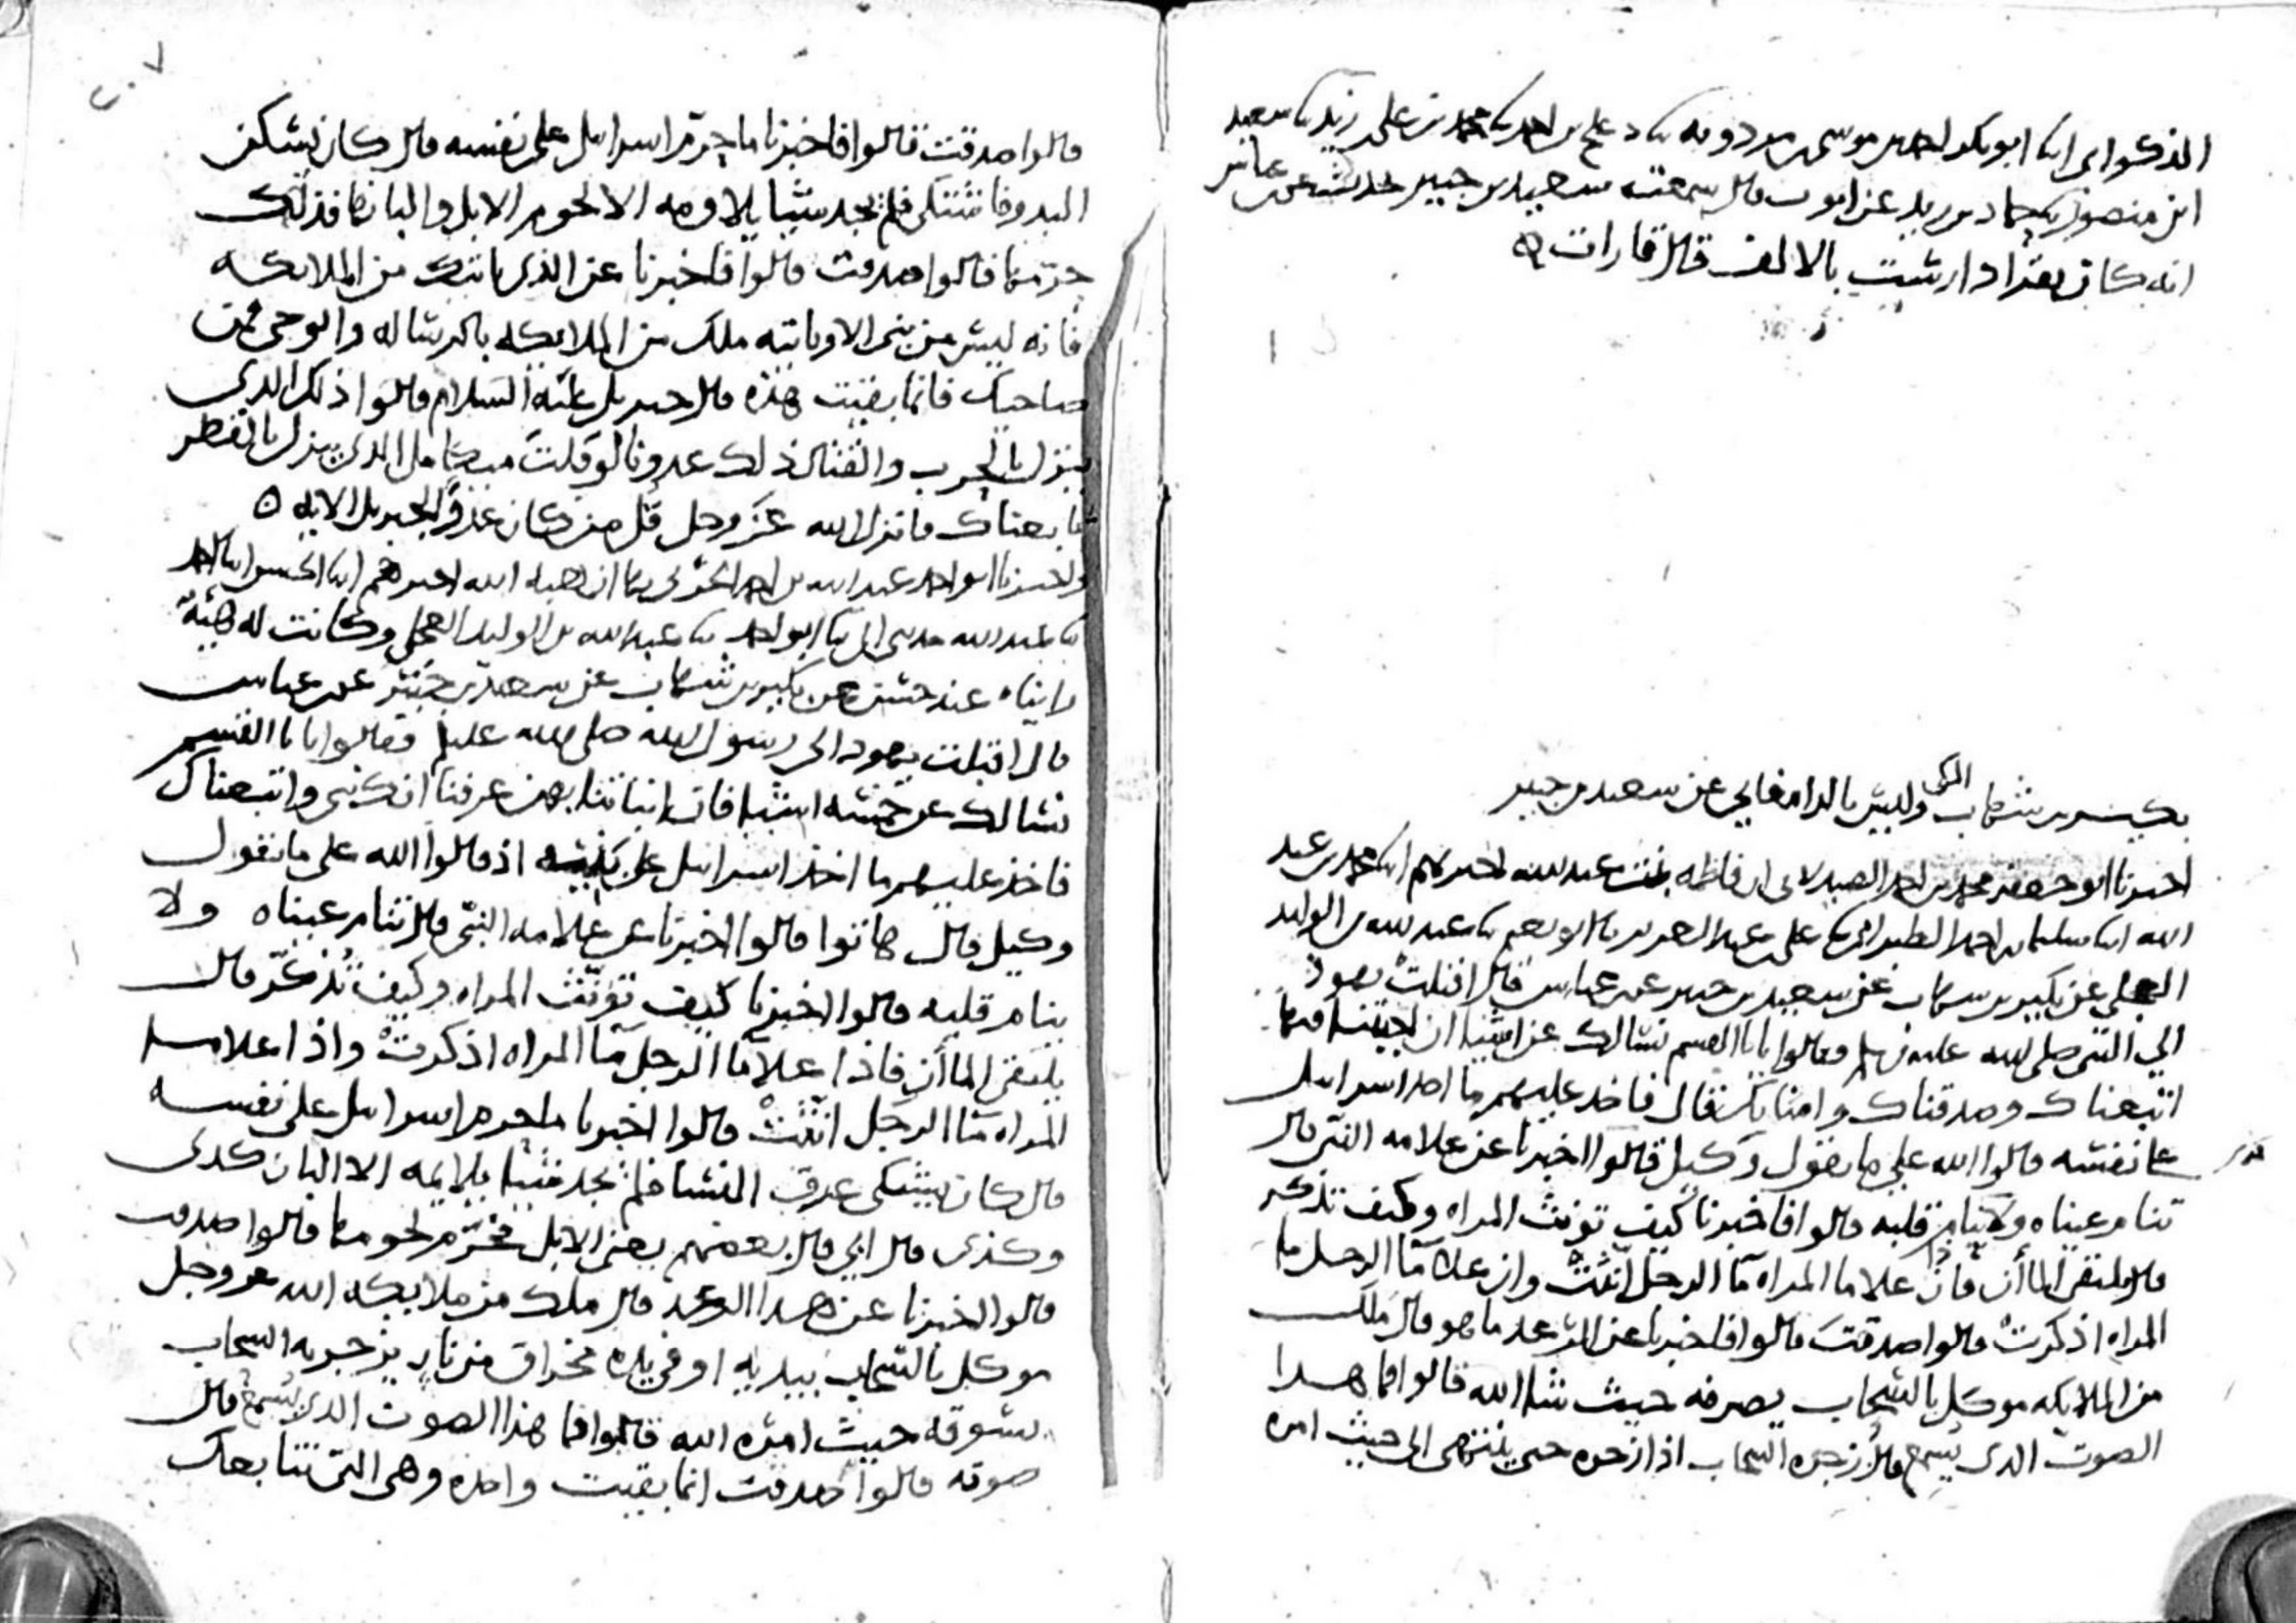 الذكواني ابنا ابو بكر احمد بن موسى بن مردويه ثنا دعلج بن احمد ثنا محمد بن علي بن زيد ثنا سعيد
ابن منصور ثنا حماد بن زيد عن ايوب قال سمعت سعيد بن جبير يحدث عن ابن عباس
انه كان يقرا دارست بالالف قال قارات ه
بكير بن شهاب الكوفي وليس بالدامغاني عن سعيد بن جبير
اخبرنا ابو جعفر محمد بن احمد الصيدلاني ان فاطمه بنت عبد الله اخبرتهم ابنا محمد بن عبد
الله ابنا سليمان بن احمد الطبراني ثنا علي بن عبد العزيز ثنا ابو نعيم ثنا عبد الله بن الوليد
العجلي عن بكير بن شهاب عن سعيد بن جبير عن ابن عباس قال اقبلت يهود
الي النبي صلى الله عليه وسلم وقالوا يا با القسم نسالك عن اشيا ان اجبتنا فيها
اتبعناك وصدقناك وامنا بك فقال فاخذ عليهم ما اخذ اسرايل
علي نفسه قالوا الله علي ما نقول وكيل قالوا اخبرنا عن علامه النبي قال
تنام عيناه ولا ينام قلبه قالوا فاخبرنا كيف تونث المراه وكيف تذكر
قال يلتقي الماان فان علا ما المراه ما الرجل انثت وان علا ما الرجل ما
المراه اذكرت قالوا صدقت قالوا فاخبرنا عن الرعد ما هو قال ملك
من الملايكه موكل بالسحاب يصرفه حيث شا الله قالوا فما هذا
الصوت الذي يسمع قال زجره السحاب اذا زجره حتى ينتهي الى حيث امره
٢٠٧
قالوا صدقت قالوا فاخبرنا ما حرم اسرايل علي نفسه قال كان يسكن
البدو فاشتكي فلم يجد شيا يلاومه الا لحوم الابل والبانها فلذلك
حرمها قالوا صدقت قالوا فاخبرنا عن الذي ياتيك من الملايكه
فانه ليس من نبي الا وياتيه ملك من الملايكه بالرساله والوحي فمن
صاحبك فانما بقيت هذه قال جبريل عليه السلام قالوا ذلك الذي
ينزل بالحرب والقتال ذلك عدونا لو قلت ميكايل الذي ينزل بالقطر
تابعناك فانزل الله عز وجل قل من كان عدوا لجبريل الايه ه
واخبرنا ابو احمد عبد الله بن احمد الحربي بها ان هبة الله اخبرهم ابنا الحسن ابنا احمد
ثنا عبد الله حدثني ابي ثنا ابو احمد ثنا عبد الله بن الوليد العجلي وكانت له هيئة
رايناه عند حسن عن بكير بن شهاب عن سعيد بن جبير عن ابن عباس
قال اقبلت يهود الى رسول الله صلى الله عليه وسلم فقالوا يا با القسم
نسالك عن خمسه اشيا فان انباتنا بهن عرفنا انك نبي واتبعناك
فاخذ عليهم ما اخذ اسرايل علي بنيه اذ قالوا الله على ما نقول
وكيل قال هاتوا قالوا اخبرنا عن علامه النبي قال تنام عيناه ولا
ينام قلبه قالوا اخبرنا كيف تونث المراه وكيف تذكر قال
يلتقي الماان فاذا علا ما الرجل ما المراه اذكرت واذا علا ما
المراه ما الرجل انثت قالوا اخبرنا ما حرم اسرايل على نفسه
قال كان يشتكي عرق النسا فلم يجد شيا يلايمه الا البان كذى
وكذى قال ابي قال بعضهم يعني الابل فحرم لحومها قالوا صدقت
قالوا اخبرنا عن هذا الرعد قال ملك من ملايكه الله عز وجل
موكل بالسحاب بيديه او في يده مخراق من نار يزجر به السحاب
يسوقه حيث امره الله قالوا فما هذا الصوت الذي نسمع قال
صوته قالوا صدقت انما بقيت واحده وهي التي نتابعك